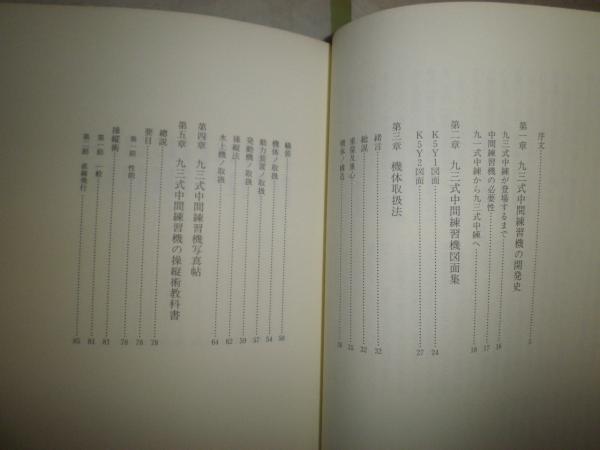 序文……5
第一章 九三式中間練習機の開発史
九三式中練が登場するまで……16
中間練習機の必要性……17
九一式中練から九三式中練へ……18
第二章 九三式中間練習機図面集
K5Y1図面……24
K5Y2図面……27
第三章 機体取扱法
緒言……32
総説……32
重量及重心……35
機体ノ構造……36
艤装……50
機体ノ取扱……54
動力装置ノ取扱……57
発動機ノ取扱……59
操縦法……62
水上機ノ取扱……64
第四章 九三式中間練習機写真帖
第五章 九三式中間練習機の操縦術教科書
総説……78
要目……78
第一節 性能……78
操縦術……81
第一節 一般……81
第二節 直線飛行……85